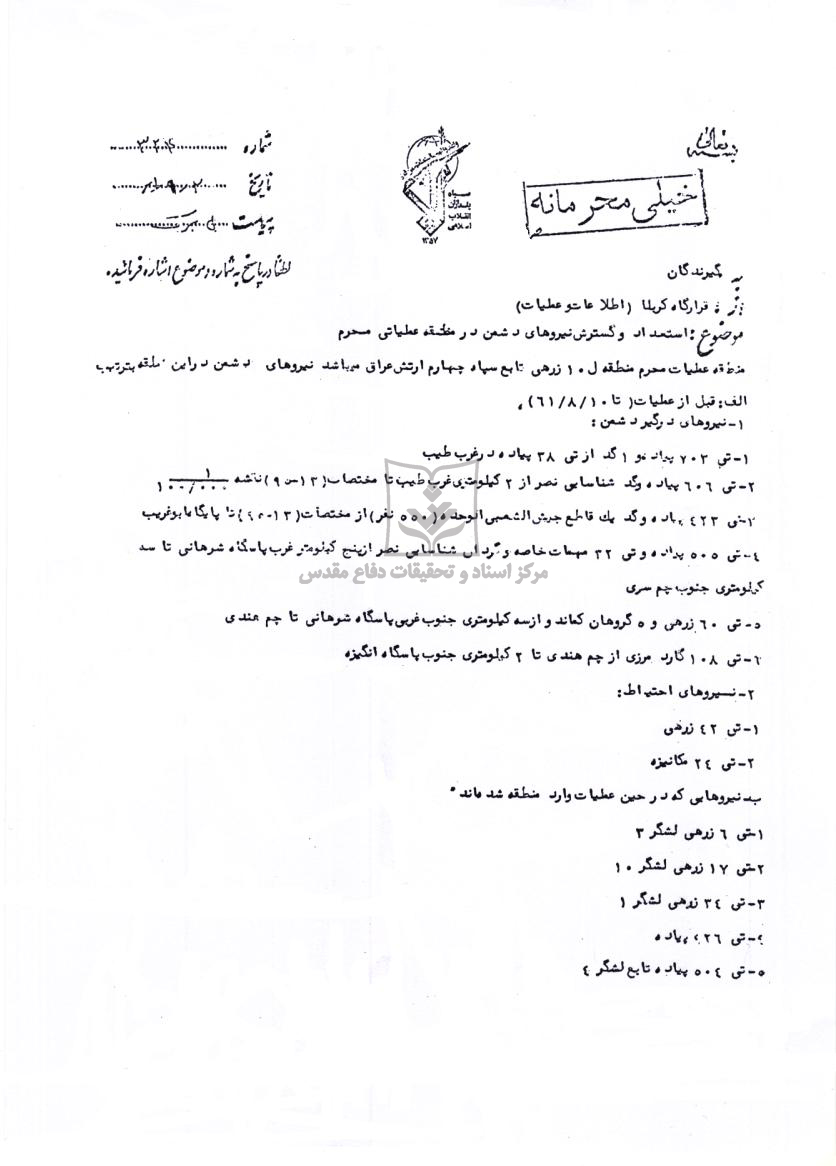 بسمه تعالی
خیلی محرمانه
سپاه
پاسداران
انقلاب
اسلامی
۱۳۵۷
شماره
تاریخ
پیوست
لطفاً در پاسخ به شماره و موضوع اشاره فرمائید.
به گیرندگان
از : قرارگاه کربلا (اطلاعات و عملیات)
موضوع : استعداد و گسترش نیروهای دشمن در منطقه عملیاتی محرم
منطقه عملیات محرم منطقه ل ۱۰ زرهی تابع سپاه چهارم ارتش عراق میباشد نیروهای دشمن در این منطقه بترتیب
الف: قبل از عملیات( تا ۶۱/۸/۱۰) ,
۱-نیروهای درگیر دشمن :
۱-تی ۷۰۳ پیاده و ۱ گد از تی ۳۸ پیاده در غرب طیب
۲-تی ۶۰۶ پیاده و گد شناسایی نصر از ۲ کیلومتری غرب طیب تا مختصات(۱۳-۹) نقشه ۱/۱۰۰/۰۰۰
۳-تی ۴۲۳ پیاده و گد یک قاطع جیش الشعبی الوحده (۵۵۰ نفر) از مختصات تا پایگاه ابوغریب
۴-تی ۵۰۵ پیاده و تی ۳۲ مهمات خاصه و گردان شناسایی نصر از پنج کیلومتر غرب پاسگاه شرهانی تا سه
کیلومتری جنوب چم سری
۵-تی ۶۰ زرهی و ۵ گروهان کماندو از سه کیلومتری جنوب غربی پاسگاه شرهانی تا چم هندی
۶-تی ۱۰۸ گارد مرزی از چم هندی تا ۲ کیلومتری جنوب پاسگاه انگیزه
۲-نیروهای احتیاط:
۱-تی ۴۲ زرهی
۲-تی ۲۴ مکانیزه
ب-نیروهایی که در حین عملیات وارد منطقه شده اند.
۱-تی ۶ زرهی لشگر ۳
۲-تی ۱۷ زرهی لشگر ۱۰
۳-تی ۳۴ زرهی لشگر ۱
۴-تی ۴۲۶ پیاده
۵-تی ۵۰۴ پیاده تابع لشگر ۴
مرکز اسناد و تحقیقات دفاع مقدس